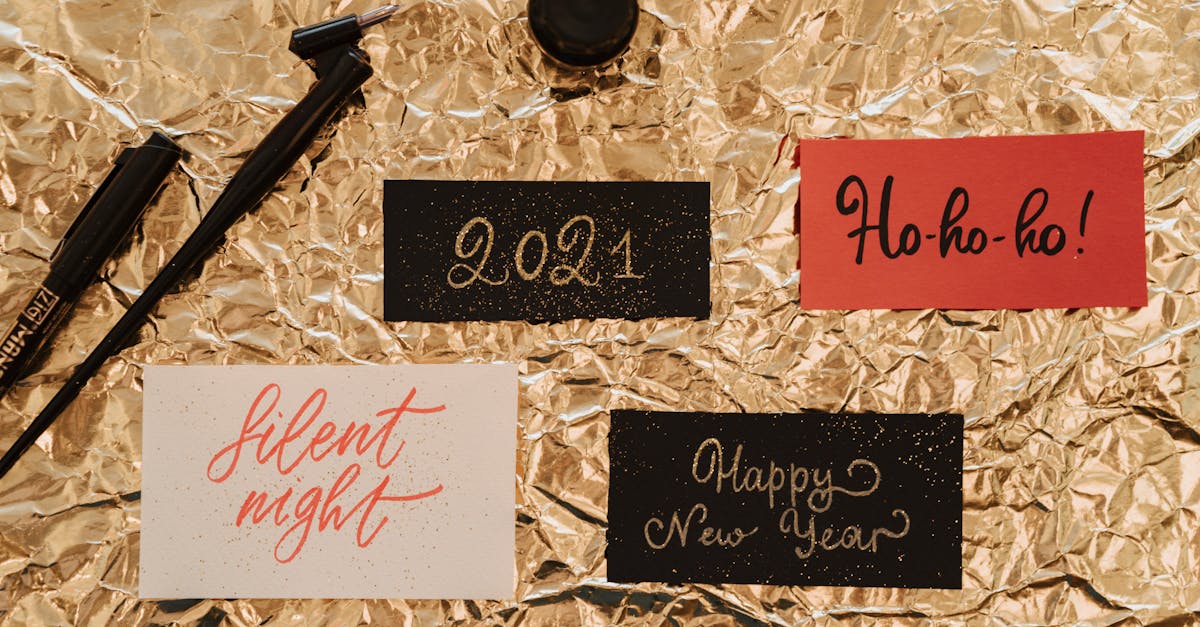 2021
Ho-ho-ho!
Silent
night
Happy
New Year
ZIG